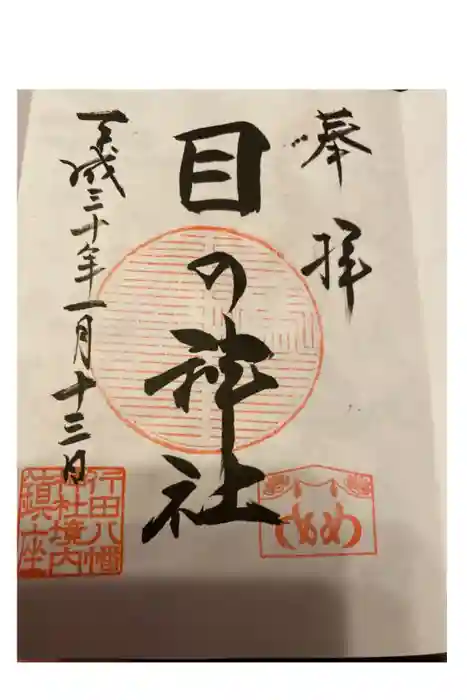 奉拝
目の神社
平成三十年一月十三日
行田八幡
神社境内
鎮座